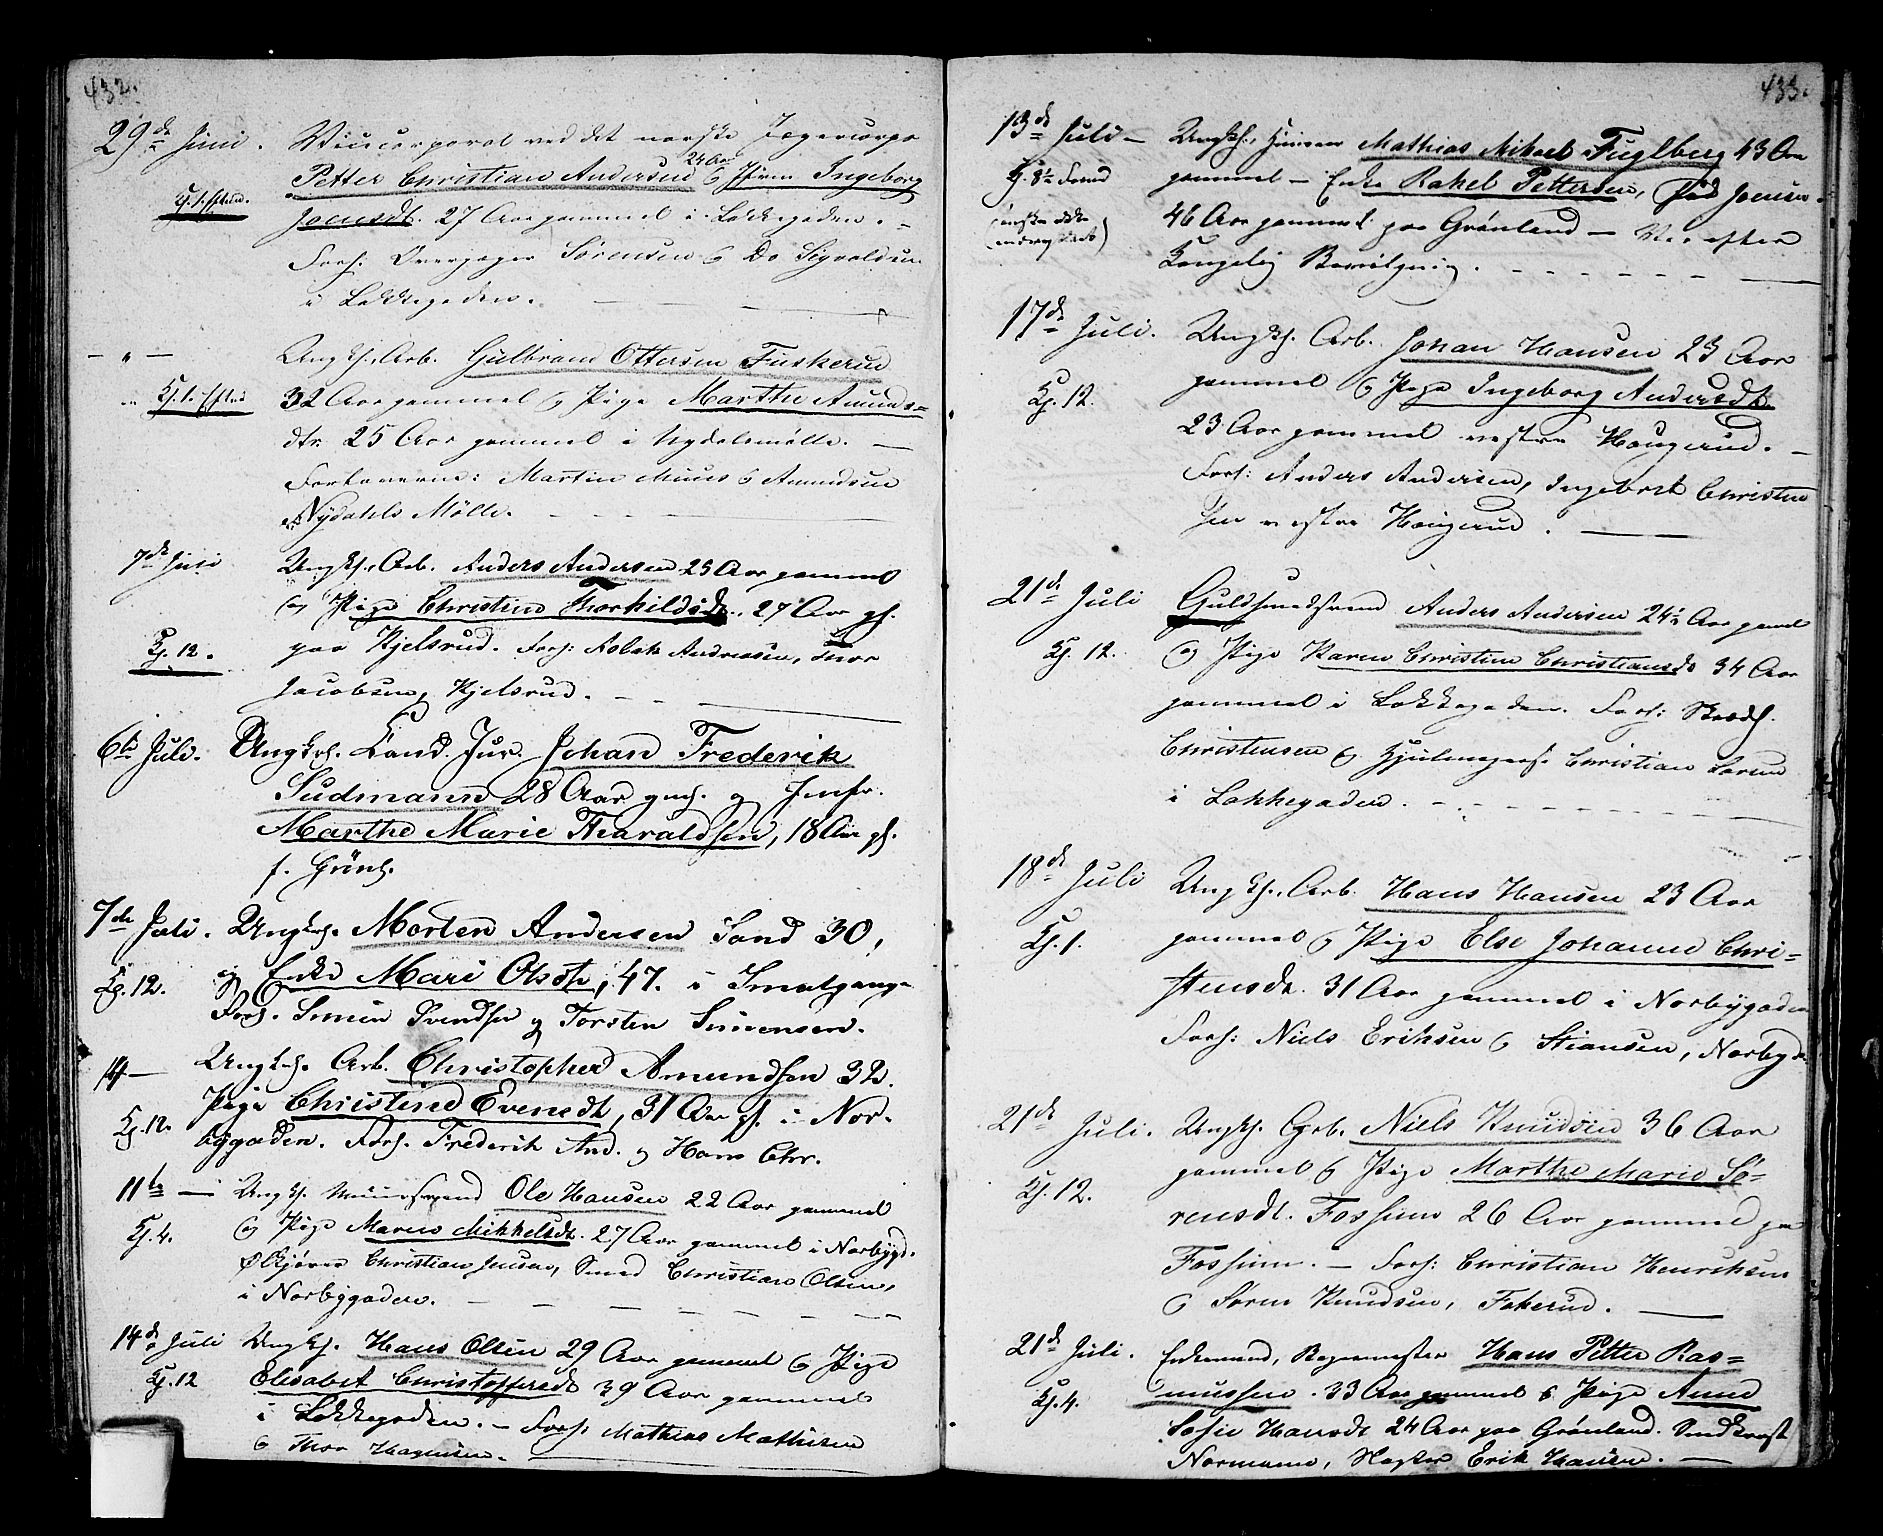 432.
29de Juni. Vicecorporal ved det norske Jægercorps
Petter Christian Andersen 24 Aar & Pigen Ingeborg
Kl. 1. Efterm. Jonsdt. 27 Aar gammel i Lakkegaden.
Forl: Overjæger Sørensen & Do Sigvaldsen
i Lakkegaden.
— " — Ungk., Arb. Gulbrand Ottersen Fuskerud
Kl. 1. Efterm 32 Aar gammel & Pige Marthe Amunds=
dtr. 25 Aar gammel i Nydalsmølle. —
Forloverne: Martin Muus & Amundsen
Nydahls Mølle.
7de Juli Ungk., Arb. Anders Andersen 25 Aar gammel
og Pige Christine Thorkildsdt., 27 Aar gl.
Kl. 12. paa Kjelsrud. Forl: Aslak Andreasen, Thor
Jacobsen, Kjelsrud.
6te Juli. Ungkrl. Cand. Jur. Johan Frederik
Sudmann 28 Aar gml. og Jmfr.
Marthe Marie Haraldsen, 18 Aar gl.
f. Grönl.
7de Juli. Ungkrl. Morten Andersen Sand 30,
Kl. 12. og Enke Mari Olsdt, 47. i Smalgang.
Forl. Simen Svendsen og Torsten Simensen.
14 — Ungkrl. Arb. Christopher Amundsen 32.
Pige Christine Evensdt, 31 Aar gl. i Nor-
Kl. 12. bygaden. Forl. Frederik And. og Hans Chr.
11te — Ungk. Muursvend Ole Hansen 22 Aar gammel
Kl. 4. og Pige Maren Mikkelsdt. 27 Aar gammel i Norbygd.
Christian Jensen, Smed Christian Olsen,
i Norbygaden.
14de Juli Ungk. Hans Olsen 29 Aar gammel & Pige
Kl. 12 Elisabet Christoffersdt 39 Aar gammel
i Lakkegaden. — Forl: Mathias Mathisen
& Thor Hagensen.
433.
13de Juli — Ungk., Mathias Mikael Fuglberg 43 Aar
Kl. 8½ Formd gammel — Enke Rahel Pettersen, Jonsen
(ønske ikke 46 Aar gammel paa Grønland — Vies efter
Kongelig Bevilgning.
17de Juli. Ungk. Arb. Johan Hansen 23 Aar
Kl. 12. gammel & Pige Ingeborg Andersdt.
23 Aar gammel vestre Haugerud. —
Forl: Anders Andersen, Ingebret Christen
sen vestre Haugerud.
21de Juli Guldsmedsvend Anders Andersen 24½ Aar gamel
Kl. 12. og Pige Karen Christine Christiansdt 34 Aar
gammel i Lakkegaden. Forl: Skrædr.
Christensen & Christian Larsen
i Lakkegaden.
18de Juli Ungk., Arb. Hans Hansen 23 Aar
Kl. 1. gammel & Pige Else Johanne Chri-
stensdt. 31 Aar gammel i Norbygaden
Forl: Niels Eriksen & Stiansen, Norbygd.
21de Juli. Ungk. Grb. Niels Knudsen 36 Aar
Kl. 12. gammel & Pige Marthe Marie Sø-
rensdt. Fossum 26 Aar gammel paa
Fossum. — Forl: Christian Henriksen
& Søren Knudsen, Fakerud.
21de Juli. Enkemand, Bagermester Hans Petter Ras=
Kl. 4. mussen 33 Aar gammel & Pige Anne
Sofie Hansdt 24 Aar paa Grønland.
Normann, Slagter Erik Hansen. —